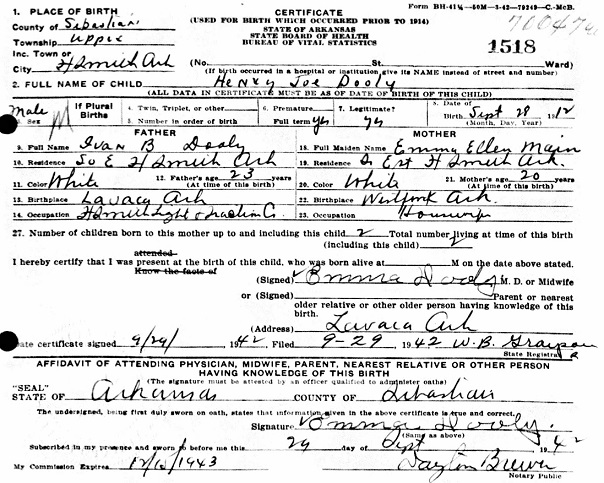 Form BH-41½—50M—3-42—79249—C.-McB.
1. PLACE OF BIRTH
CERTIFICATE
County of Sebastian
(USED FOR BIRTH WHICH OCCURRED PRIOR TO 1914)
STATE OF ARKANSAS
Township Upper
STATE BOARD OF HEALTH
BUREAU OF VITAL STATISTICS
1518
Inc. Town of
City Ft Smith Ark (No. St. Ward)
(If birth occurred in a hospital or institution give its NAME instead of street and number)
2. FULL NAME OF CHILD Henry Joe Dooly
(ALL DATA IN CERTIFICATE MUST BE AS OF DATE OF BIRTH OF THIS CHILD)
Male
3. Sex If Plural Births 4. Twin, Triplet, or other 6. Premature 7. Legitimate? 8. Date of
5. Number in order of birth Full term yes yes Birth Sept 28 1912
(Month, Day, Year)
FATHER MOTHER
9. Full Name Ivan B Dooly 18. Full Maiden Name Emma Ellen Main
10. Residence So E Ft Smith Ark 19. Residence Ft Smith Ark.
11. Color White 12. Father's age 23 years (At time of this birth) 20. Color White 21. Mother's age 20 years (At time of this birth)
13. Birthplace Lavaca Ark 22. Birthplace Westfork Ark.
14. Occupation Ft Smith Light & Traction Co. 23. Occupation Housewife
27. Number of children born to this mother up to and including this child 2 Total number living at time of this birth
(including this child) 2
attended
I hereby certify that I was present at the birth of this child, who was born alive at M on the date above stated.
Know the facts of
(Signed) Emma Dooly M. D. or Midwife
or (Signed) Parent or nearest
older relative or other older person having knowledge of this
birth.
(Address) Lavaca Ark
Date certificate signed 9/29/ 1942, Filed 9-29 1942 W. B. Grayson
State Registrar
AFFIDAVIT OF ATTENDING PHYSICIAN, MIDWIFE, PARENT, NEAREST RELATIVE OR OTHER PERSON
HAVING KNOWLEDGE OF THIS BIRTH
"SEAL" (The signature must be attested by an officer qualified to administer oaths)
STATE OF Arkansas COUNTY OF Sebastian
The undersigned, being first duly sworn on oath, states that information given in the above certificate is true and correct.
Signature Emma Dooly.
(Same as above)
Subscribed in my presence and sworn to before me this 29 day of Sept 1942
My Commission Expires 12/15/1943 Dayton Brewer
Notary Public